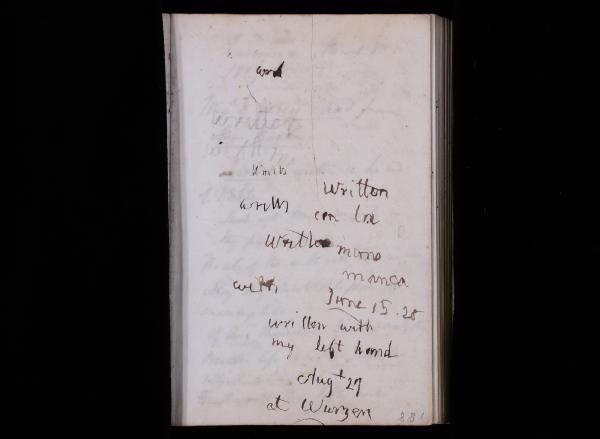 and
written
with
writt
writh
written
con la
written mano
manca
with
June 15.28
written with
my left hand
Augt 27
at Wurzen